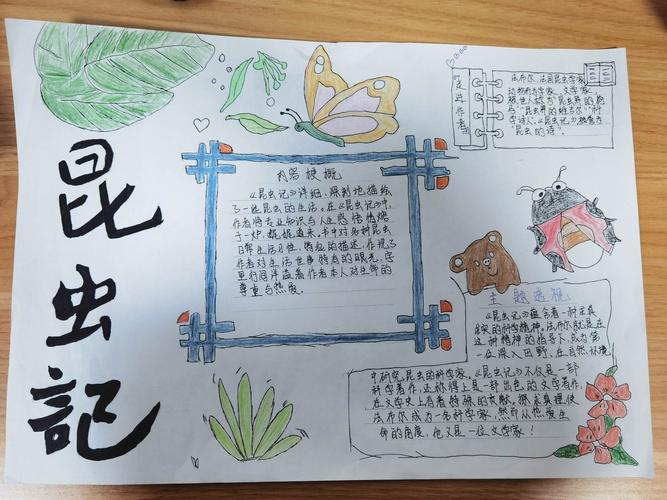 昆虫記
走进作者
法布尔,法国昆虫学家,
动物行为学家,文学家。
被世人称为"昆虫界的荷马"
"昆虫界的维吉尔"科
学诗人,《昆虫记》被誉为
"昆虫的诗"。
内容梗概
《昆虫记》详细、深刻地描绘
了一些昆虫的生活,在《昆虫记》中,
作者将专业知识与人生感悟情熔
于一炉,娓娓道来,书中对各种昆虫
日常生活习性、特征的描述,
作者对生活世事特有的眼光,字
里行间洋溢着作者本人对生命的
尊重与热爱。
主题透视
《昆虫记》蕴含着一种求真
务实的科学精神。法布尔就是在
这种精神的指导下,成为第
一位深入田野,在自然环境
中研究昆虫的科学家。《昆虫记》不仅是一部
科学著作,还称得上是一部出色的文学著作,
在文学史上有着特殊的贡献。探求真理使
法布尔成为一名科学家,然而从热爱生
命的角度,他又是一位文学家!